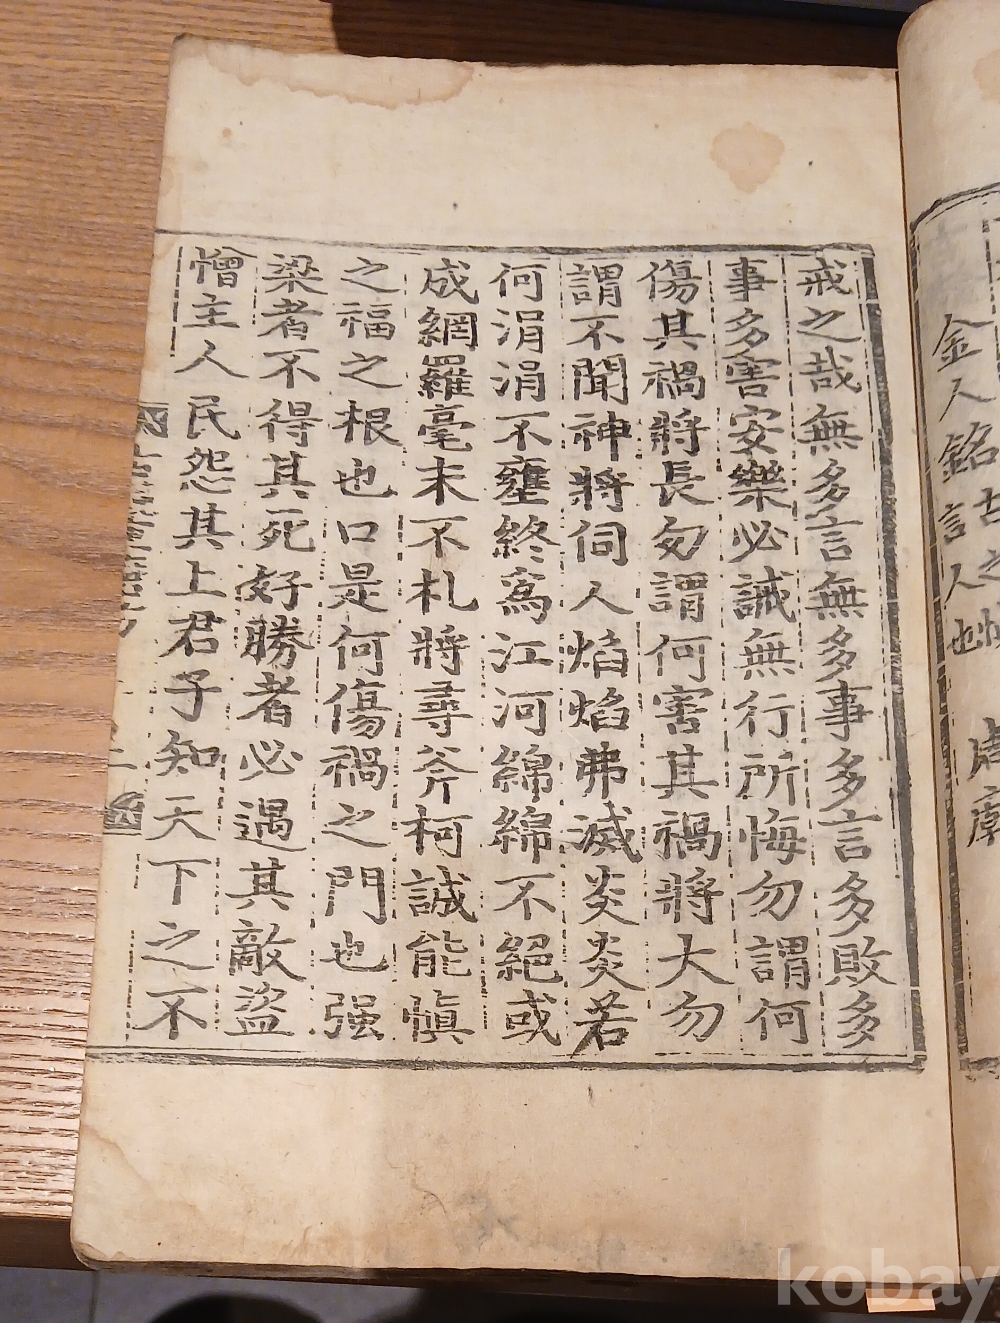 金人銘言人也
戒之哉無多言無多事多言多敗多
事多害安樂必誡無行所悔勿謂何
傷其禍將長勿謂何害其禍將大勿
謂不聞神將伺人焰焰弗滅炎炎若
何涓涓不壅終爲江河綿綿不絕或
成網羅毫末不札將尋斧柯誠能愼
之福之根也口是何傷禍之門也强
梁者不得其死好勝者必遇其敵盜
憎主人民怨其上君子知天下之不
kobay